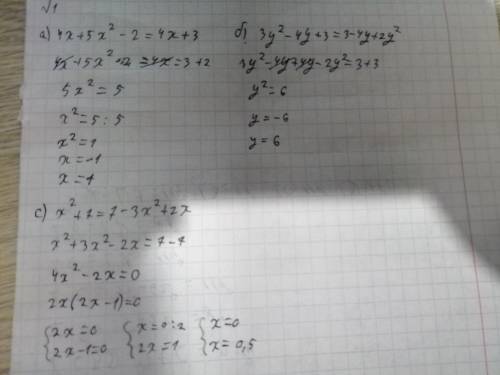 √1
а) 4x+5x²-2=4x+3
4x+5x²-4x=3+2
5x²=5
x²=5:5
x²=1
x=-1
x=1
б) 3y²-4y+3=3-4y+2y²
3y²-4y+4y-2y²=3+3
y²=6
y=-6
y=6
c) x²+7=7-3x²+2x
x²+3x²-2x=7-7
4x²-2x=0
2x(2x-1)=0
{2x=0 {x=0:2 {x=0
{2x-1=0 {2x=1 {x=0,5